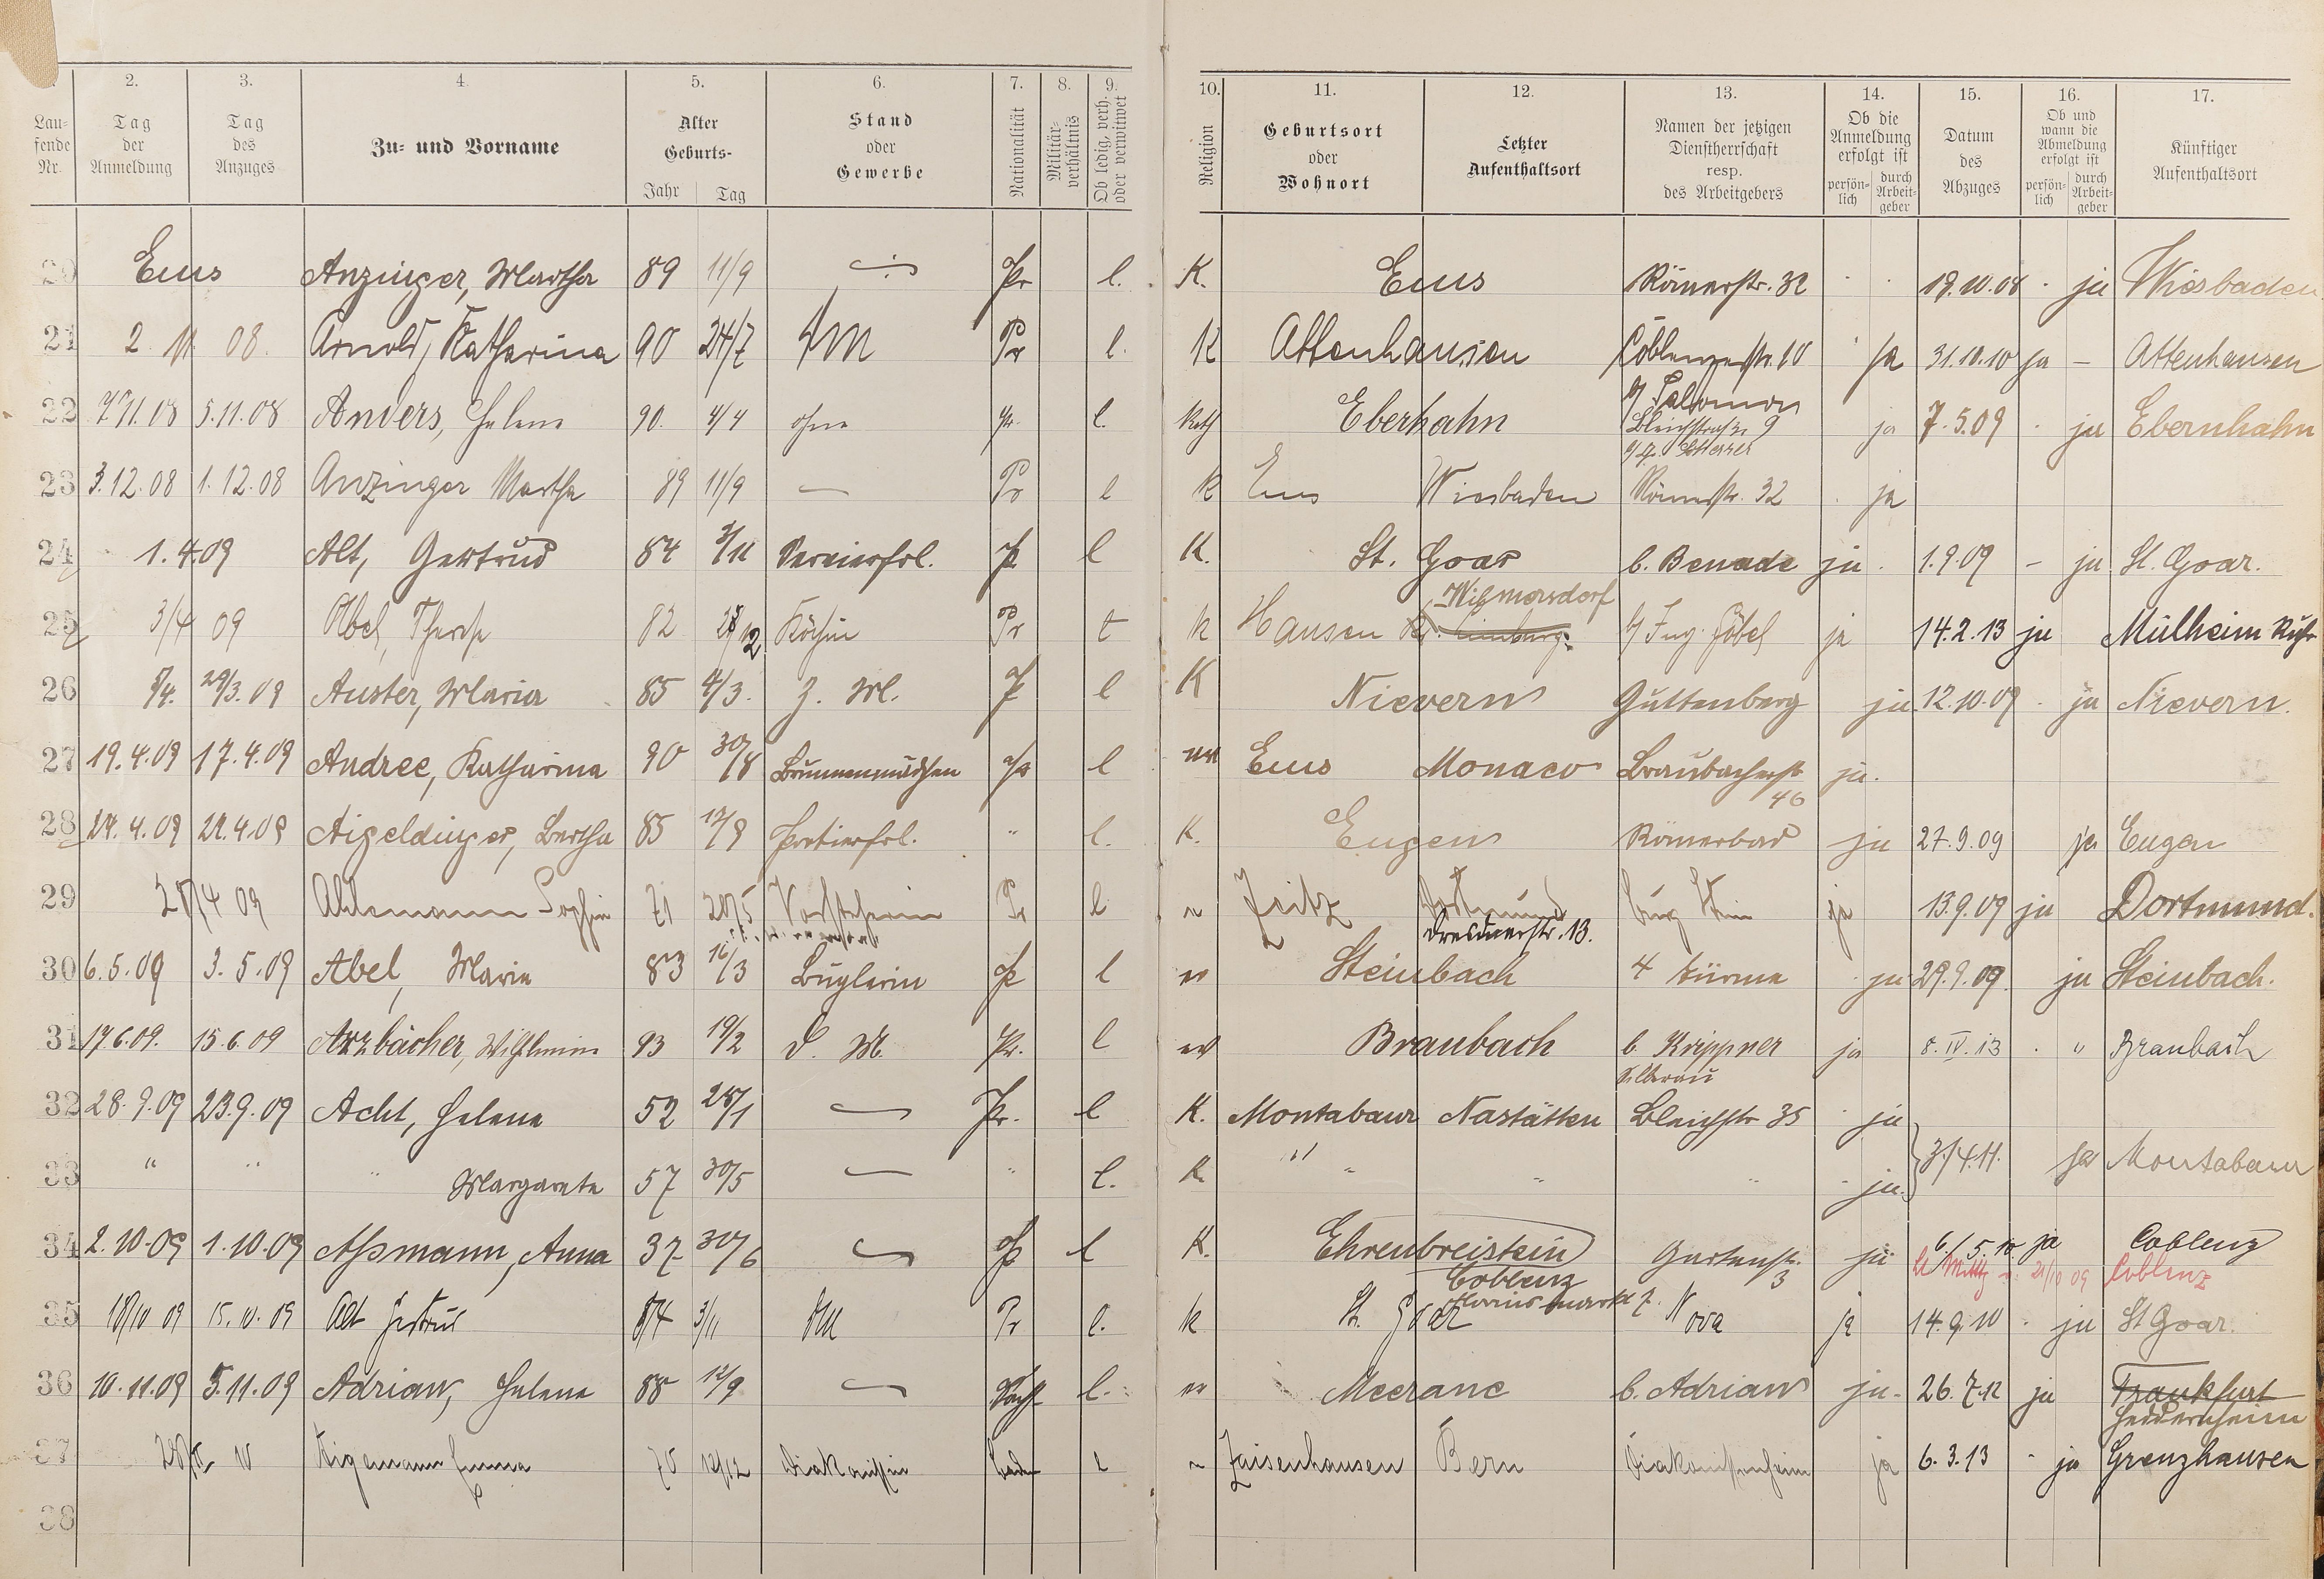 2. 3. 4. 5. 6. 7. 8. 9. 10. 11. 12. 13. 14. 15. 16. 17.
Lau-fende Nr. Tag der Anmeldung Tag des Anzuges Zu- und Vorname Alter Geburts- Jahr Tag Stand oder Gewerbe Nationalität Militär-verhältnis Ob ledig, verh. oder verwitwet Religion Geburtsort oder Wohnort Letzter Aufenthaltsort Namen der jetzigen Dienstherrschaft resp. des Arbeitgebers Ob die Anmeldung erfolgt ist persön-lich durch Arbeit-geber Datum des Abzuges Ob und wann die Abmeldung erfolgt ist persön-lich durch Arbeit-geber Künftiger Aufenthaltsort
20 Ems Anzinger, Martha 89 11/9 Pr l. K. Ems Römerstr. 32 18.10.08 ja Wiesbaden
21 2 11 08. Arnold, Katharina 90 24/7 Pr l. K Attenhausen Coblenzerstr. 10 ja 31.10.10 ja – Attenhausen
b/ Salomon
22 7.11.08 5.11.08 Anders, Helene 90. 4/4 ohne Pr. l. Kath Eberhahn Bleichstraße 9 ja 7.5.09 ja Ebernhahn
23 3.12.08 1.12.08 Anzinger Martha 89 11/9 — Pr l K Ems Wiesbaden Römerstr. 32 ja
24 1.4.09 Alt, Gertrud 84 3/11 Servierfrl. Pr l K. St. Goar b. Benade ja 1.9.09 – ja St. Goar.
Wilmersdorf
25 3/4 09 Abel, Therese 82 28/12 Köchin Pr l K Hausen Kr. Limburg b/ Ing. Göbel ja 14.2.13 ja Mülheim Ruhr
26 8/4. 29/3.09 Auster, Maria 85 4/3. Z. M. Pr l K Nievern Guttenberg ja 12.10.09 ja Nievern.
27 19.4.09 17.4.09 Andree, Katharina 90 30/8 Brunnenmädchen Pr l ev Ems Monaco Braubacherstr 46 ja.
28 24.4.09 21.4.09 Aigeldinger, Bertha 85 12/9 " l. K. Eugen Römerbad ja 27.9.09 ja Eugen
29 28/4 09 Ahlemann Sophie 71 20/5 Vorsteherin Pr l Zeitz Dortmund ja 13.9.09 ja Dortmund.
Dresdnerstr. 13.
30 6.5.09 3.5.09 Abel, Marie 83 16/3 Büglerin Pr l ev Steinbach 4 Türme ja 29.9.09 ja Steinbach.
31 17.6.09. 15.6.09 Arzbächer, Wilhelmine 93 19/2 D. M. Pr. l ev Braubach b. Krippner ja 8.IV.13 " Braubach
Silberau
32 28.9.09 23.9.09 Acht, Helene 52 28/1 — Pr. l K. Montabaur Nastätten Bleichstr 35 ja
33 " " " Margarete 57 30/5 — " l. K. " " " ja. 3/4.11. ja Montabaur
34 2.10.09 1.10.09 Aßmann, Anna 37 30/6 — Pr l K. Ehrenbreistein Gartenstr. 3 ja 6./5.10. ja Coblenz
Coblenz 21/10 09 Coblenz
35 18/10 09 15.10.09 Alt Gertrud 84 3/11 Pr l. K St. Goar Nova ja 14.9.10 ja St Goar.
36 10.11.09 5.11.09 Adrian, Helene 88 12/9 — l. ev Meerane b. Adrian ja. 26.7.12 ja Frankfurt
Heddernheim
37 Emma 70 12/12 Diakonissin Baden l Zaisenhausen Bern Diakonissenheim ja 6.3.13 ja Grenzhausen
38